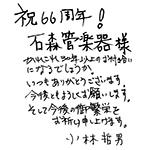 祝66周年!
石森管楽器様
かれこれ30年以上のお付き合い
になるでしょうか、
いつもありがとうございます。
今後ともよろしくお願いします。
そして今後の御繁栄を
お祈り申し上ります。
小林哲男